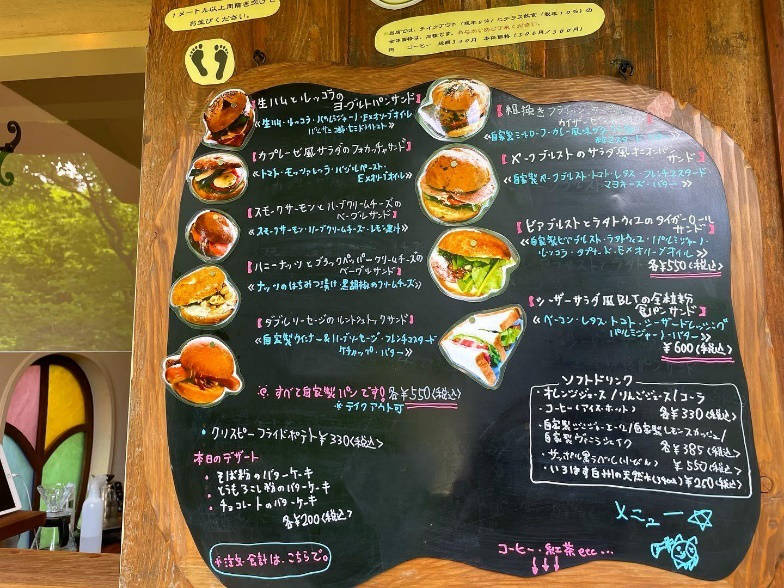 1メートル以上間隔を空けて
お並びください。
生ハムとルッコラの
ヨーグルトパンサンド
≪生ハム・ルッコラ・パルミジャーノ・EXオリーブオイル
カプレーゼ風サラダのフォカッチャサンド
≪トマト・モッツァレッラ・バジルペースト・
EXオリーブオイル≫
スモークサーモンとハーブクリームチーズの
ベーグルサンド
≪スモークサーモン・ハーブクリームチーズ・レモン果汁≫
ハニーナッツとブラックペッパークリームチーズの
ベーグルサンド
≪ナッツのはちみつ漬け・黒胡椒のクリームチーズ≫
ダブルソーセージのルントシュトックサンド
≪自家製ウインナー&ハーブソーセージ・フレンチマスタード
ケチャップ・バター≫
※すべて自家製パンです! 各¥550(税込)
※テイクアウト可
・クリスピーフライドポテト¥330(税込)
本日のデザート
・そば粉のバターケーキ
・とうもろこし粉のバターケーキ
・チョコレートのバターケーキ
各¥200(税込)
※注文・会計は、こちらで。
粗挽き
カイザー
サラダ風
サンド
トマト・レタス・フレンチマスタード
マヨネーズ・バター≫
ビアブルストとラタトゥイユのタイガーロール
サンド
≪自家製ビアブルスト・ラタトゥイユ・パルミジャーノ・
ルッコラ・タプナード・EXオリーブオイル≫
各¥550(税込)
シーザーサラダ風BLTの全粒粉
食パンサンド
≪ベーコン・レタス・トマト・シーザードレッシング
パルミジャーノ・バター≫
¥600(税込)
ソフトドリンク
・オレンジジュース/りんごジュース/コーラ
・コーヒー(アイス・ホット) 各¥330(税込)
・自家製ジンジャーエール/自家製レモンスカッシュ/
自家製
各¥385(税込)
・サッポロ黒ラベル(小びん) ¥550(税込)
・いろはす白州の天然水 ¥250(税込)
メニュー☆
コーヒー・紅茶etc...
↓↓↓